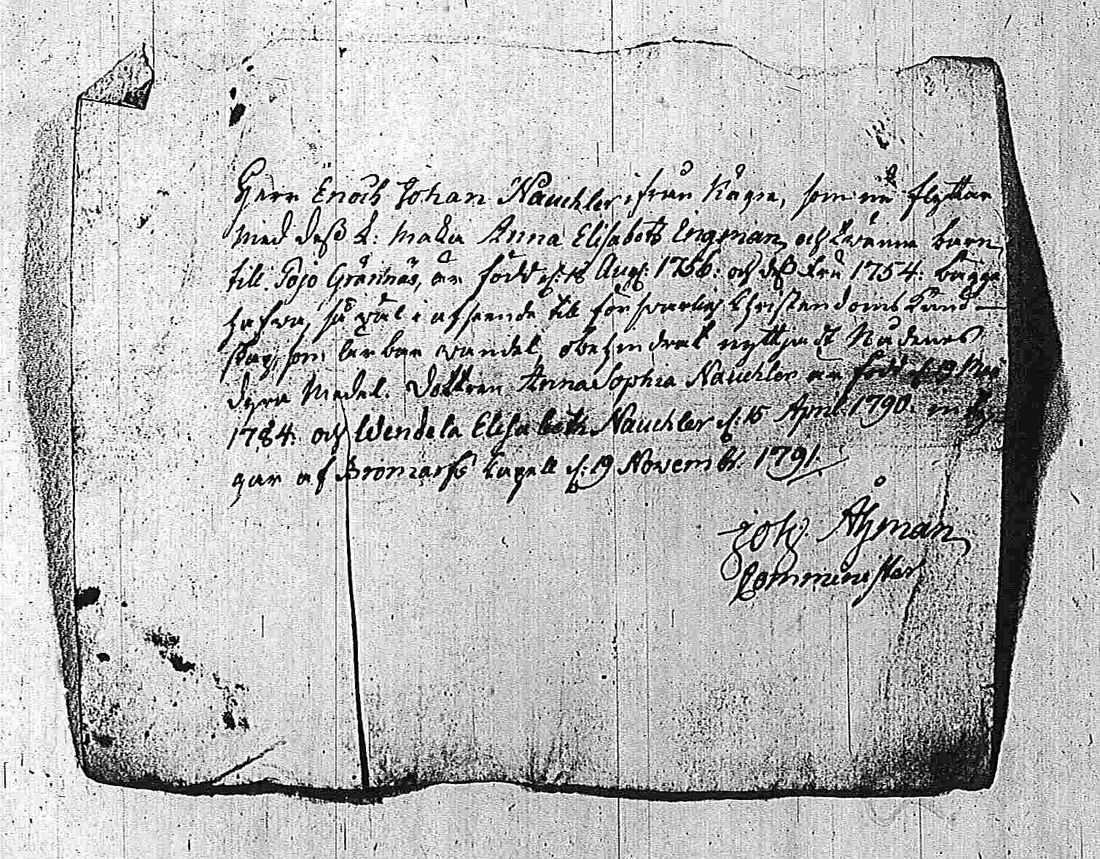 Herr Enoch Johan Nauchler ifrån Kågne, som nu flyttar
med dess k: maka Anna Elisabeth Engman, och tvänne barn
till Pojo Grännäs, är född d: Aug: 1756: och dess Fru 1754: bägge
hafva, så väl i afseende till försvarlig Christendoms Kund-
skap, som ärbar vandel, obehindrat nyttjadt Nådenes
dyra Medel. Dottren Anna Sophia Nauchler är född d: 19 Maii
1784. och Wendela Elisabeth Nauchler d: 15 April 1790.
gar af Bromarfs Capell d: 19 Novemb: 1791.
Joh: Åhman
Comminister